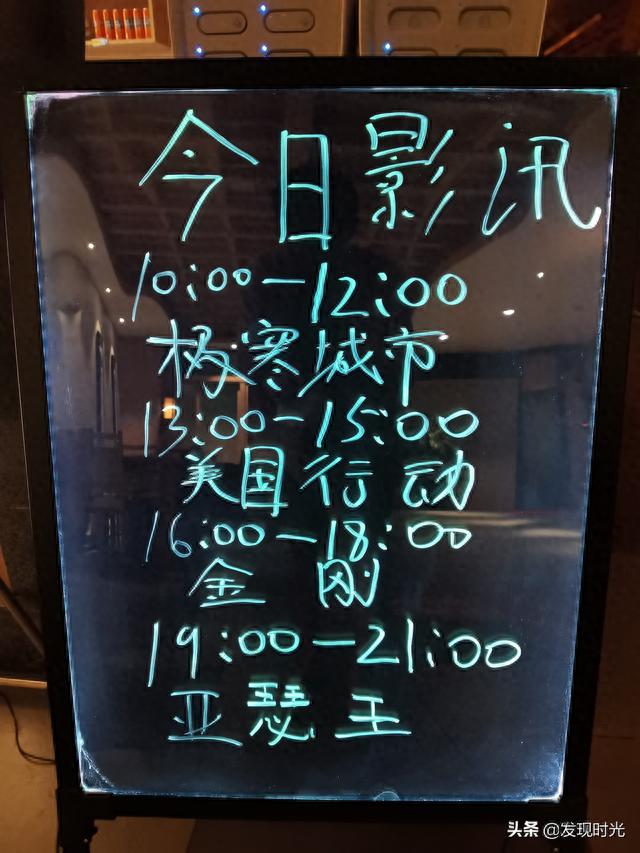 今日影讯
10:00-12:00
极寒城市
13:00-15:00
美国行动
16:00-18:00
金刚
19:00-21:00
亚瑟王
头条 @发现时光